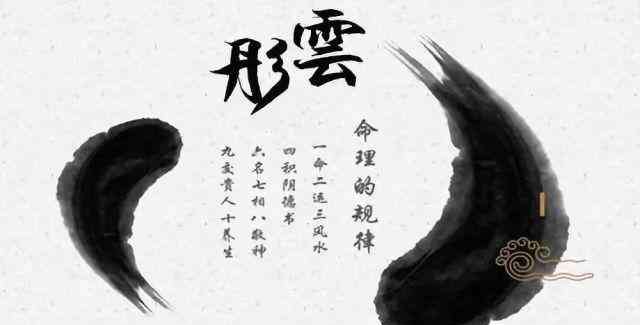 彤雲
命理的规律
一命二运三风水
四积阴德书
六名七相八敬神
九交贵人十养生